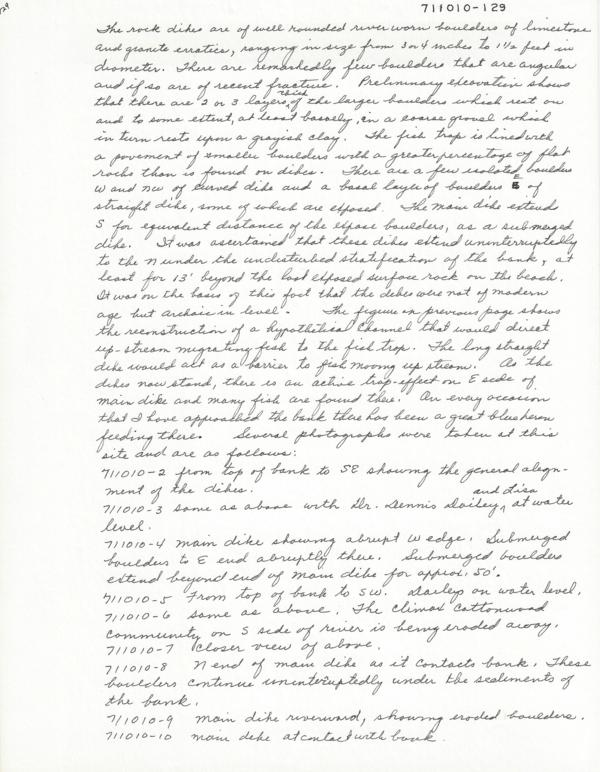 711010-129
The rock dikes are of well rounded river worn boulders of limestone
and granite erratics, ranging in size from 3 or 4 inches to 1½ feet in
diameter. There are remarkedly few boulders that are angular
and if so are of recent fracture. Preliminary excavation shows
that there are 2 or 3 layers, thick of the larger boulders which rest on
and to some extent, at least basely, in a coarse gravel which
in turn rests upon a grayish clay. The fish trap is lined with
a pavement of smaller boulders with a greater percentage of flat
rocks than is found on dikes. There are a few isolated boulders
W and NW of curved dike and a basal layer of boulders E of
straight dike, some of which are exposed. The main dike extends
S for equivalent distance of the expose boulders, as a submerged
dike. It was ascertained that these dikes extend uninterruptedly
to the N under the undisturbed stratification of the bank, at
least for 13' beyond the last exposed surface rock on the beach.
It was on the basis of this fact that the dikes were not of modern
age but archaic in level. The figure on previous page shows
the reconstruction of a hypothetical channel that would direct
up-stream migrating fish to the fish trap. The long straight
dike would act as a barrier to fish moving up stream. As the
dikes now stand, there is an active trap-effect on E side of
main dike and many fish are found there. On every occasion
that I have approached the bank there has been a great blue heron
feeding there. Several photographs were taken at this
site and are as follows:
711010-2 from top of bank to SE showing the general align-
ment of the dikes.
711010-3 same as above with Dr. Dennis Dailey, and Lisa at water
level.
711010-4 main dike showing abrupt W edge. Submerged
boulders to E end abruptly there. Submerged boulders
extend beyond end of main dike for approx. 50'.
711010-5 From top of bank to SW. Daileys on water level.
711010-6 same as above. The climax cottonwood
community on S side of river is being eroded away.
711010-7 closer view of above.
711010-8 N end of main dike as it contacts bank. These
boulders continue uninteruptedly under the sediments of
the bank.
711010-9 main dike riverward, showing eroded boulders.
711010-10 main dike at contact with bank.